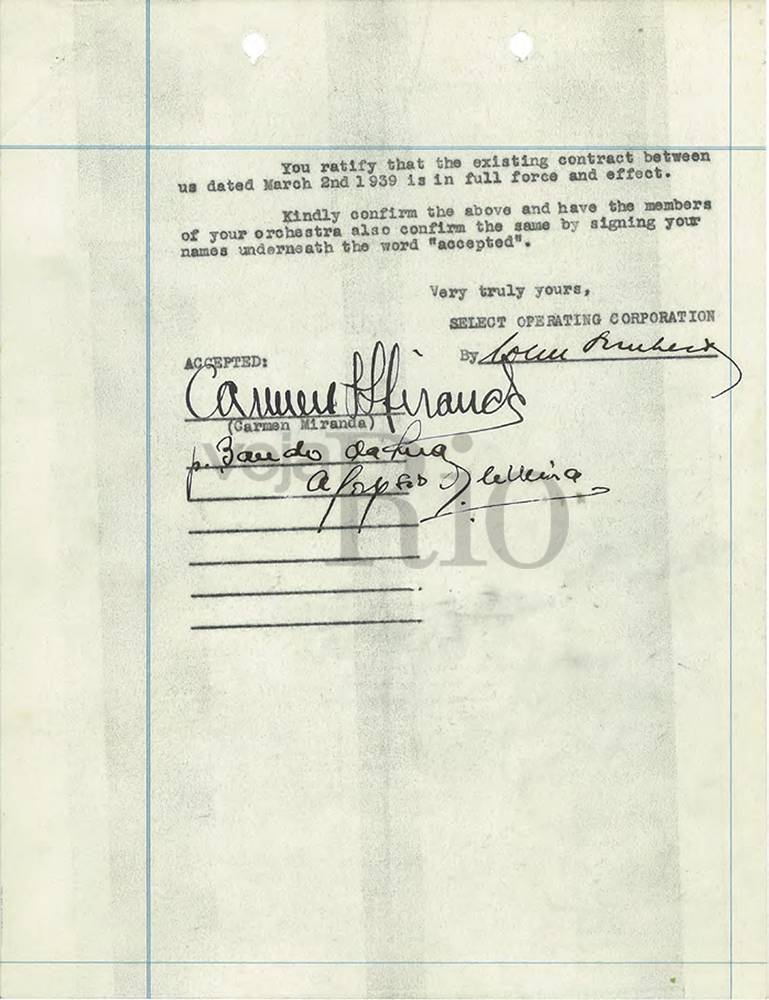 You ratify that the existing contract between
us dated March 2nd 1939 is in full force and effect.
Kindly confirm the above and have the members
of your orchestra also confirm the same by signing your
names underneath the word "accepted".
Very truly yours,
SELECT OPERATING CORPORATION
By
ACCEPTED:
Carmen Miranda
(Carmen Miranda)
p. Bando da Lua
veja Rio